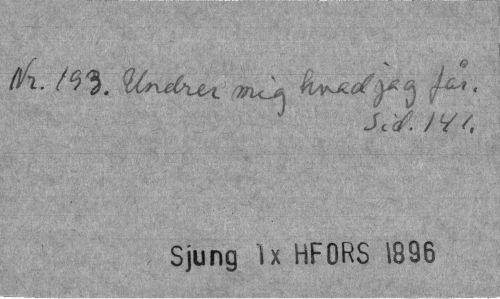 Nr. 193. Undrer mig hvad jag får.
Sid. 141.
Sjung 1x HFORS 1896